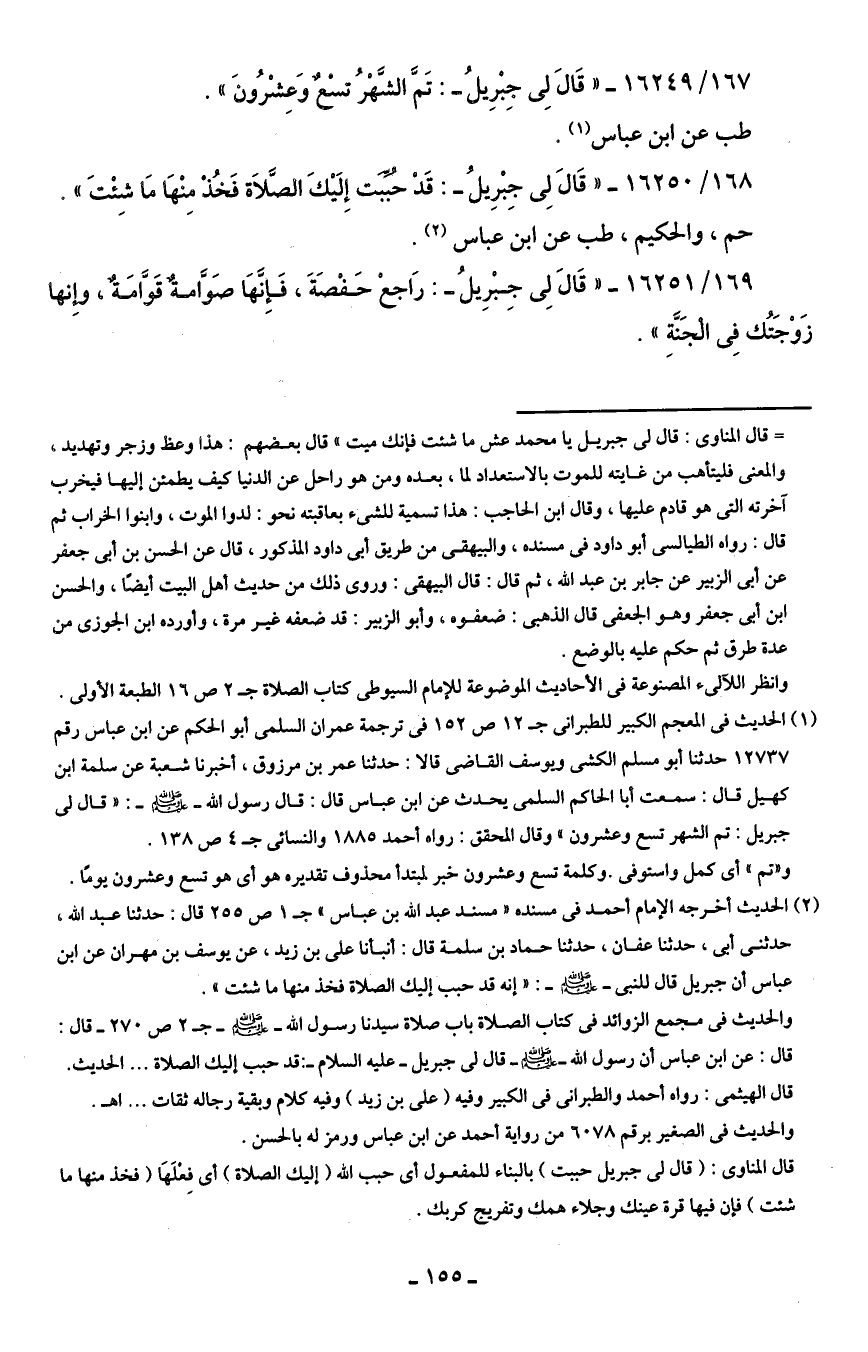 ١٦٧/ ١٦٢٤٩ ـ « قَالَ لِى جِبْرِيلُ ـ : تَمَّ الشَّهْرُ تسْعٌ وَعشْرُونَ » .
طب عن ابن عباس(١) .
١٦٨/ ١٦٢٥٠ ـ « قَالَ لِى جِبْرِيلُ ـ : قَدْ حُبِّبَت إِلَيْكَ الصَّلاَة فَخُذْ مِنْهَا مَا شِئْتَ » .
حم ، والحكيم ، طب عن ابن عباس (٢) .
١٦٩/ ١٦٢٥١ ـ « قَالَ لِى جِبْرِيلُ ـ : رَاجِعْ حَفْصَةَ ، فَإِنَّهَا صَوَّامةٌ قَوَّامَةٌ ، وإنها
زَوْجَتُك فِى الْجَنَّةِ » .
= قال المناوى : قال لى جبريل يا محمد عش ما شئت فإنك ميت » قال بعضهم : هذا وعظ وزجر وتهديد ،
والمعنى فليتأهب من غايته للموت بالاستعداد لما ، بعده ومن هو راحل عن الدنيا كيف يطمئن إليها فيخرب
آخرته التى هو قادم عليها ، وقال ابن الحاجب : هذا تسمية للشىء بعاقبته نحو : لدوا الموت ، وابنوا الخراب ثم
قال : رواه الطيالسى أبو داود فى مسنده ، والبيهقى من طريق أبى داود المذكور ، قال عن الحسن بن أبى جعفر
عن أبى الزبير عن جابر بن عبد الله ، ثم قال : قال البيهقى : وروى ذلك من حديث أهل البيت أيضًا ، والحسن
ابن أبى جعفر وهو الجعفى قال الذهبى : ضعفوه ، وأبو الزبير : قد ضعفه غير مرة ، وأورده ابن الجوزى من
عدة طرق ثم حكم عليه بالوضع .
وانظر اللآلىء المصنوعة فى الأحاديث الموضوعة للإمام السيوطى كتاب الصلاة جـ ٢ ص ١٦ الطبعة الأولى .
(١) الحديث فى المعجم الكبير للطبرانى جـ ١٢ ص ١٥٢ فى ترجمة عمران السلمى أبو الحكم عن ابن عباس رقم
١٢٧٣٧ حدثنا أبو مسلم الكشى ويوسف القاضى قالا : حدثنا عمر بن مرزوق ، أخبرنا شعبة عن سلمة ابن
كهيل قال : سمعت أبا الحاكم السلمى يحدث عن ابن عباس قال : قال رسول الله ـ ﷺ ـ : « قال لى
جبريل : تم الشهر تسع وعشرون » وقال المحقق : رواه أحمد ١٨٨٥ والنسائى جـ ٤ ص ١٣٨ .
و«تم » أى كمل واستوفى .وكلمة تسع وعشرون خبر لمبتدأ محذوف تقديره هو أى هو تسع وعشرون يومًا .
(٢) الحديث أخرجه الإمام أحمد فى مسنده « مسند عبد الله بن عباس » جـ ١ ص ٢٥٥ قال : حدثنا عبد الله ،
حدثنى أبى ، حدثنا عفان ، حدثنا حماد بن سلمة قال : أنبأنا على بن زيد ، عن يوسف بن مهران عن ابن
عباس أن جبريل قال للنبى ـ ﷺ ـ : « إنه قد حبب إليك الصلاة فخذ منها ما شئت » .
والحديث فى مجمع الزوائد فى كتاب الصلاة باب صلاة سيدنا رسول الله ـ ﷺ ـ جـ ٢ ص ٢٧٠ ـ قال :
قال : عن ابن عباس أن رسول الله ـ ﷺ ـ قال لى جبريل ـ عليه السلام ـ:قد حبب إليك الصلاة ... الحديث.
قال الهيثمى : رواه أحمد والطبرانى فى الكبير وفيه ( على بن زيد ) وفيه كلام وبقية رجاله ثقات ... اهـ .
والحديث فى الصغير برقم ٦٠٧٨ من رواية أحمد عن ابن عباس ورمز له بالحسن .
قال المناوى : ( قال لى جبريل حببت ) بالبناء للمفعول أى حبب الله ( إليك الصلاة ) أى فِعْلَهَا ( فخذ منها ما
شئت ) فإن فيها قرة عينك وجلاء همك وتفريج كربك .
ـ ١٥٥ ـ